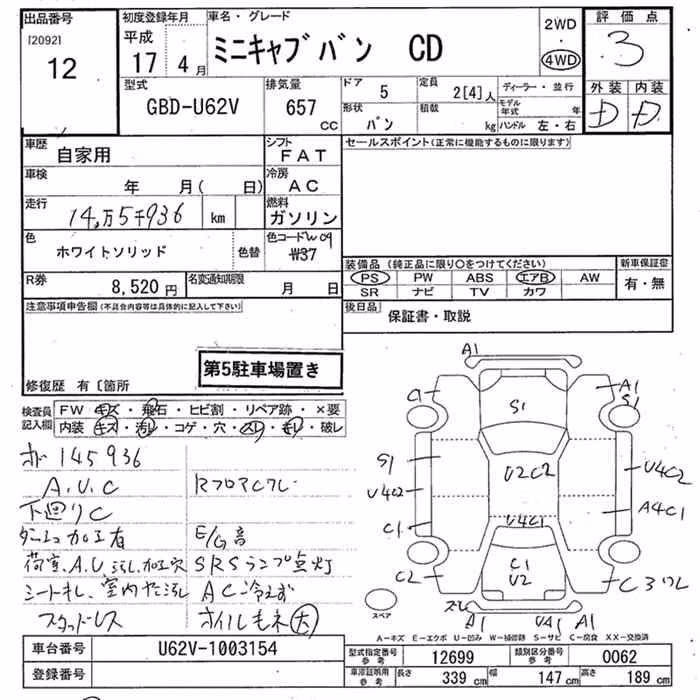 出品番号
[2092]
12
初度登録年月
平成
17年 4月
車名・グレード
ミニキャブバン CD
2WD
・
4WD
評価点
3
外装 内装
D D
型式
GBD-U62V
排気量
657
CC
ドア
5
定員
2[4]人
ディーラー・並行
形状
バン
積載
kg
モデル年式
年
ハンドル 左・右
車歴
自家用
シフト
FAT
セールスポイント(正常に機能するものに限ります)
車検
年 月( 日)
冷房
AC
走行
14万5千936
km
燃料
ガソリン
色
ホワイトソリッド
色替
色コード W09
#37
装備品 (純正品に限り○をつけてください)
新車保証書
PS PW ABS エアB AW
SR ナビ TV カワ
有・無
R券
8,520円
名変通知期限
月 日
後日品
保証書・取説
注意事項申告欄(不具合内容等は具体的に記入して下さい)
第5駐車場置き
修復歴 有〔箇所
検査員記入欄
FW キズ・飛石・ヒビ割・リペア跡・×要
内装 キズ・汚レ・コゲ・穴・スレ・キレ・破レ
メーター 145936
A.U.C
RフロアCワレ
下廻りC
加工有
E/G音
荷室.A.U 汚れ.加工穴
SRSランプ点灯
シートキレ、室内ヤニ汚レ
AC冷えず
スタッドレス
オイルモレ大
A1
C1
A1
S1
S1
S1
U2C2
U4C2
U4C2
A4C1
C1
U4C1
C1
U2
C2
C3ワレ
ズレ
A1
UA1
A1
スペア
A－キズ E－エクボ U－凹み W－補修跡 S－サビ C－腐食 XX－交換済
車台番号
U62V-1003154
型式指定番号
参考
12699
類別区分番号
参考
0062
登録番号
車庫証明用
参考
長さ
339 cm
幅
147 cm
高さ
189 cm